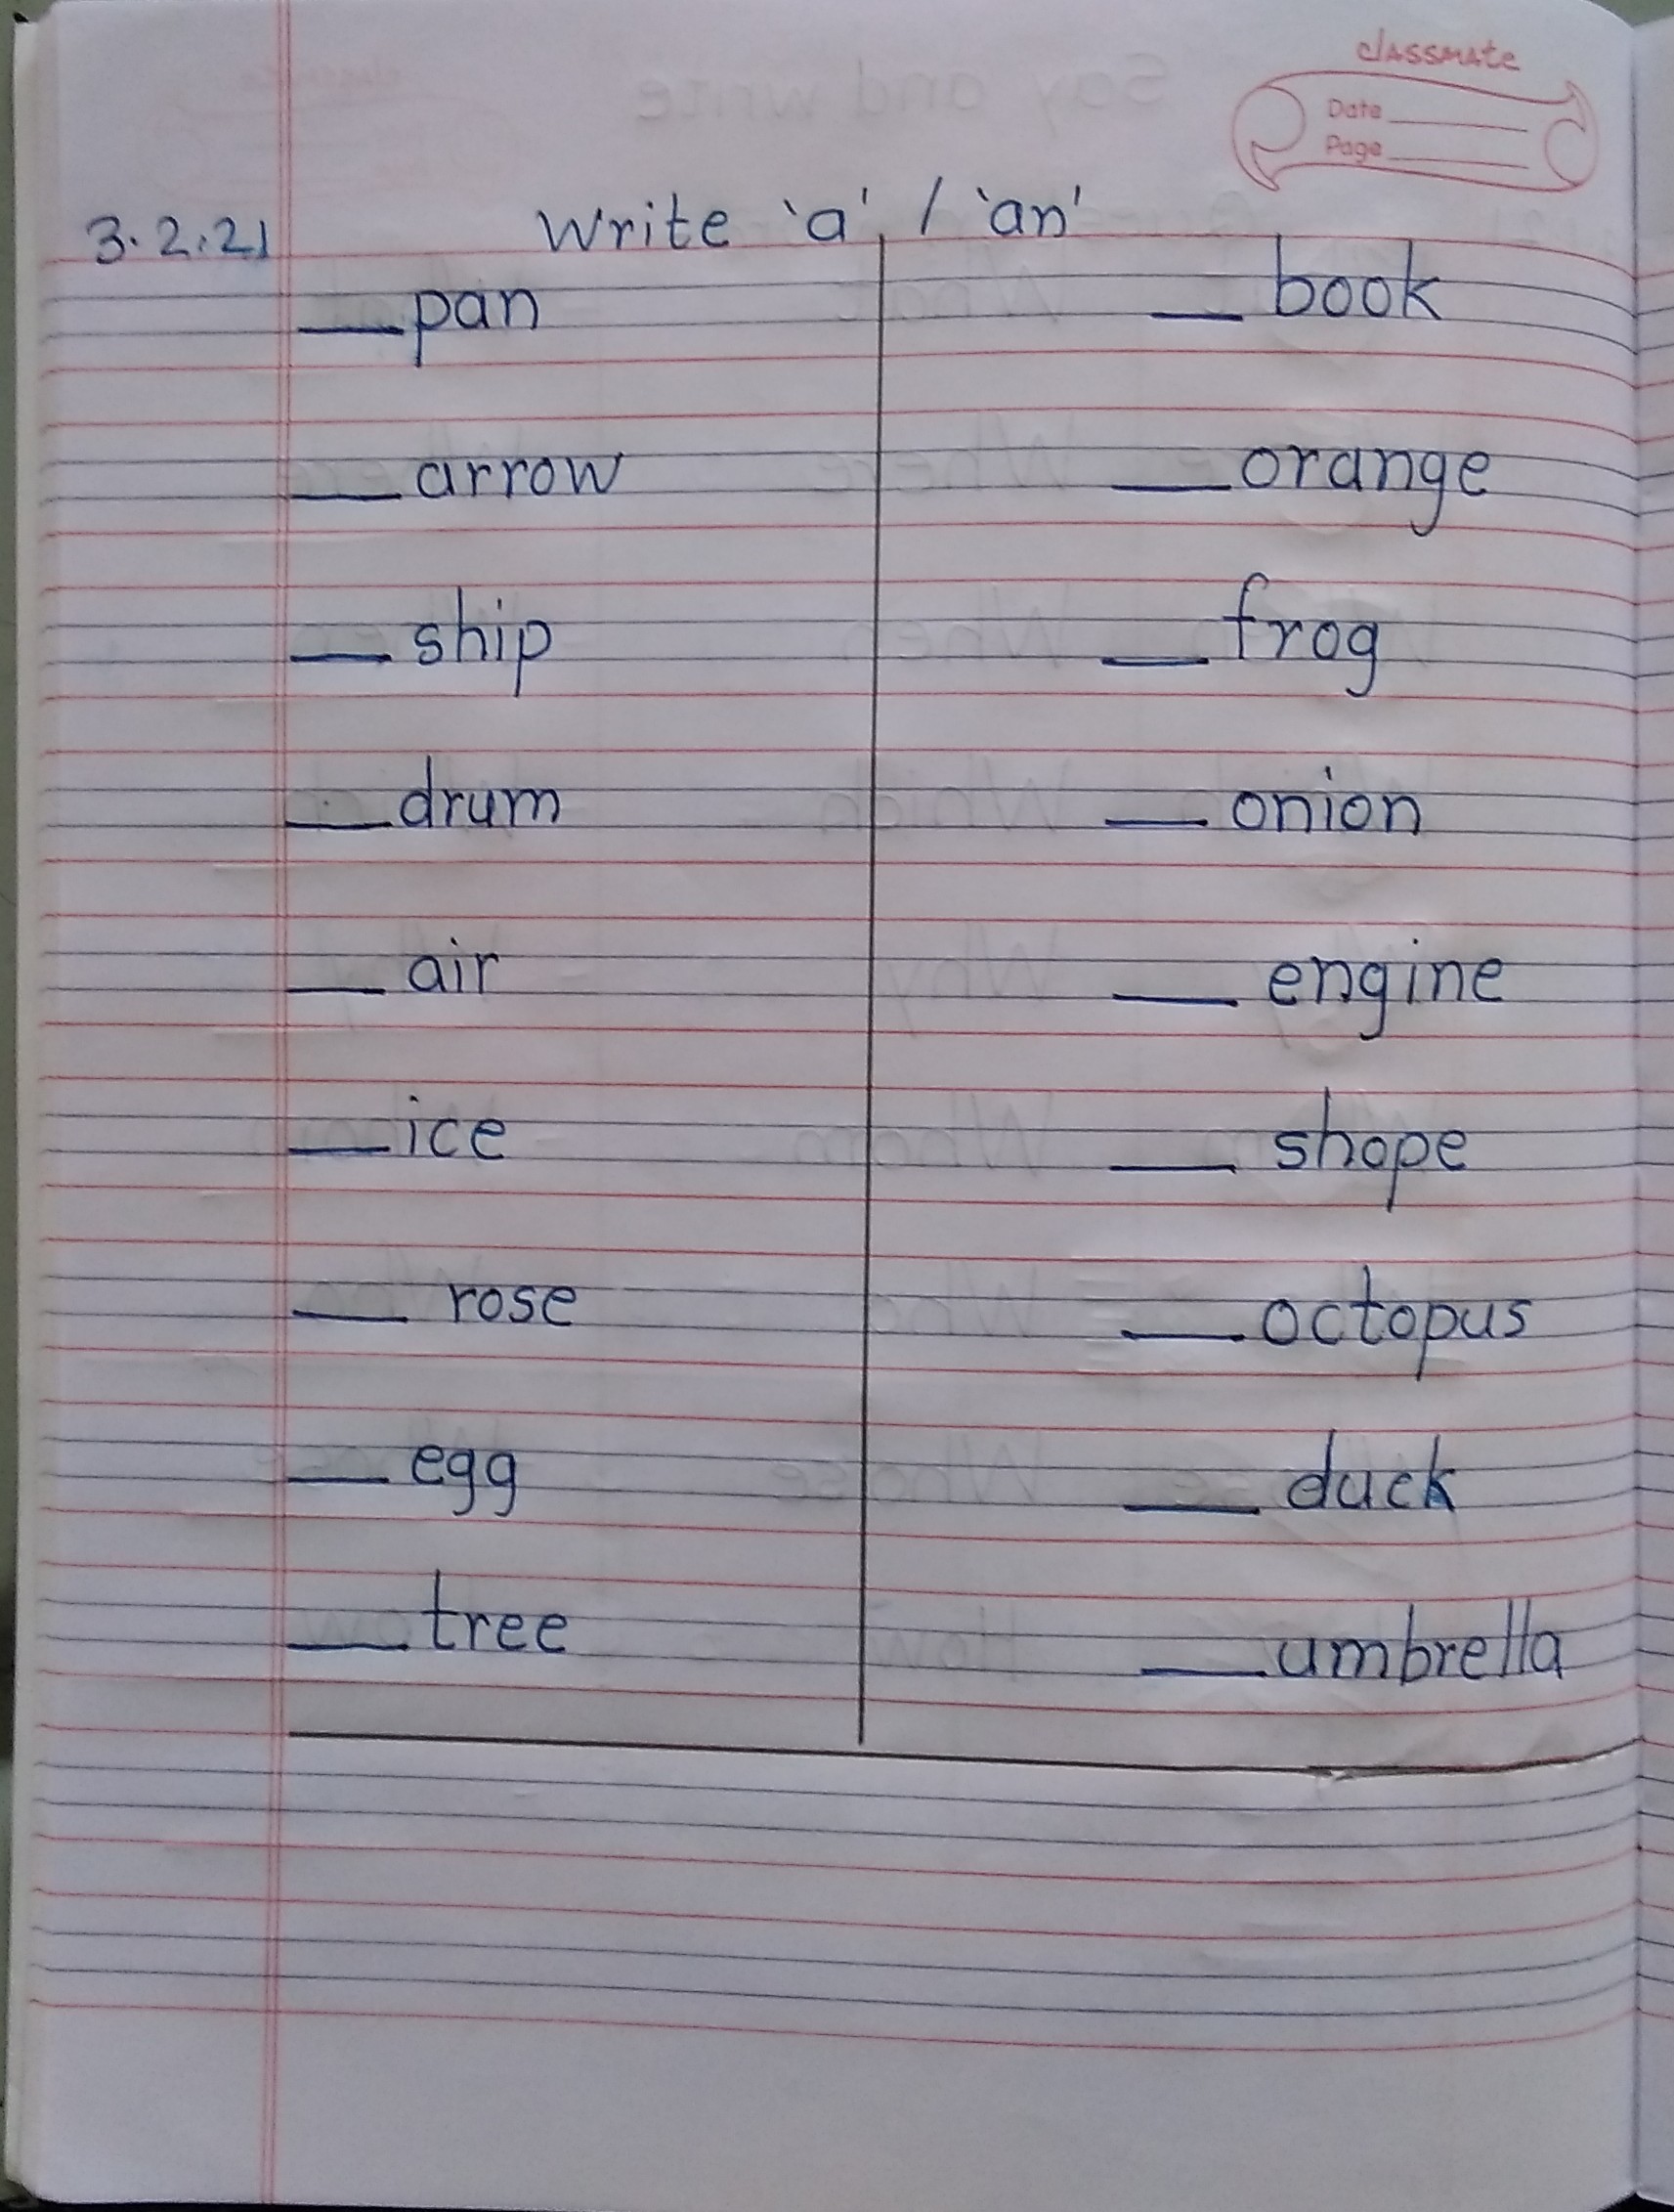 classmate
Date
Page
3.2.21 Write 'a' / 'an'
__ pan __ book
__ arrow __ orange
__ ship __ frog
__ drum __ onion
__ air __ engine
__ ice __ shope
__ rose __ octopus
__ egg __ duck
__ tree __ umbrella